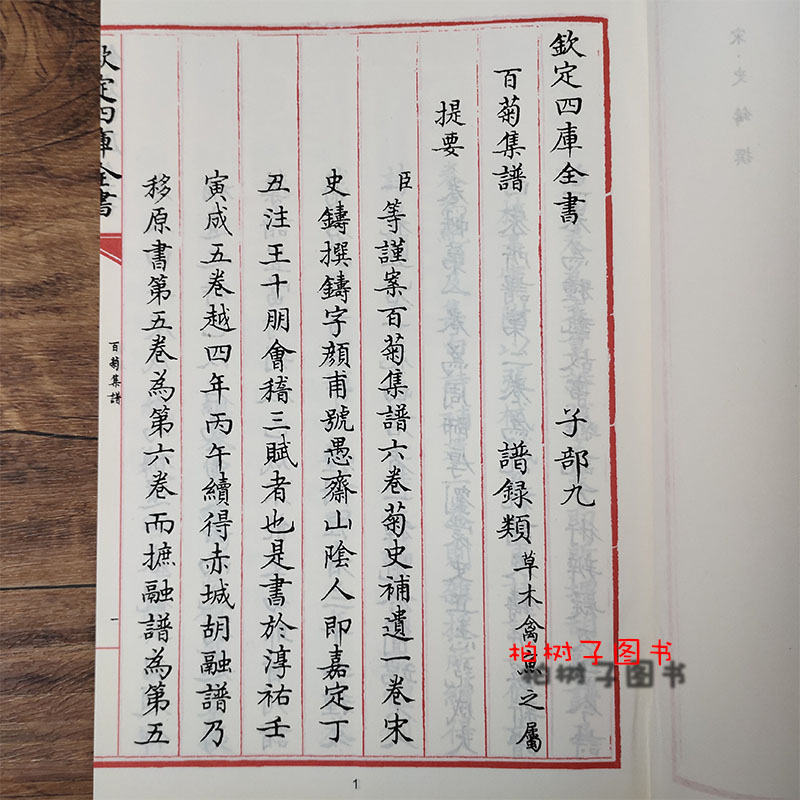 欽定四庫全書 子部九
百菊集譜 譜録類 草木禽魚之屬
提要
臣等謹案百菊集譜六卷菊史補遺一卷宋
史鑄撰鑄字顔甫號愚齋山陰人即嘉定丁
丑注王十朋會稽三賦者也是書於淳祐壬
寅成五卷越四年丙午續得赤城胡融譜乃
移原書第五卷為第六卷而摭融譜為第五
欽定四庫全書
百菊集譜
一
1
宋·史鑄撰
柏树子图书